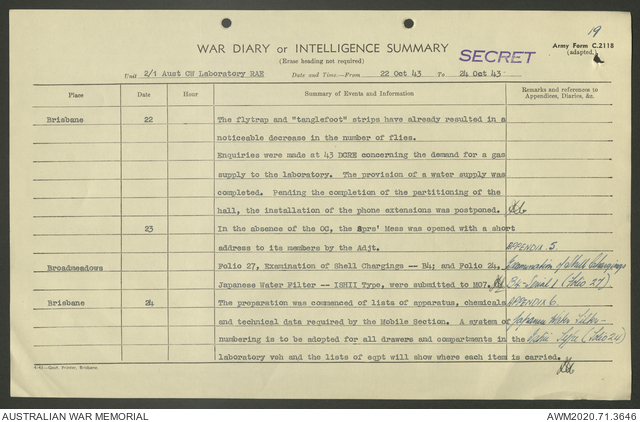 19
Army Form C.2118
(adapted)
WAR DIARY or INTELLIGENCE SUMMARY
SECRET
(Erase heading not required)
Unit 2/1 Aust CW Laboratory RAE Date and Time—From 22 Oct 43 To 24 Oct 43.
Place Date Hour Summary of Events and Information Remarks and references to Appendices, Diaries, &c.
Brisbane 22 The flytrap and "tanglefoot" strips have already resulted in a
noticeable decrease in the number of flies.
Enquiries were made at 43 DCRE concerning the demand for a gas
supply to the laboratory. The provision of a water supply was
completed. Pending the completion of the partitioning of the
hall, the installation of the phone extensions was postponed.
23 In the absence of the OC, the Sprs' Mess was opened with a short
address to its members by the Adjt. APPENDIX 5.
Broadmeadows Folio 27, Examination of Shell Chargings -- B4; and Folio 24, Examination of Shell Chargings
Japanese Water Filter -- ISHII Type, were submitted to MO7. (Folio 27)
Brisbane 24 The preparation was commenced of lists of apparatus, chemicals APPENDIX 6.
and technical data required by the Mobile Section. A system of Japanese Water Filter -
numbering is to be adopted for all drawers and compartments in the Type (Folio 24)
laboratory veh and the lists of eqpt will show where each item is carried.
4-43—Govt. Printer, Brisbane.
AUSTRALIAN WAR MEMORIAL
AWM2020.71.3646